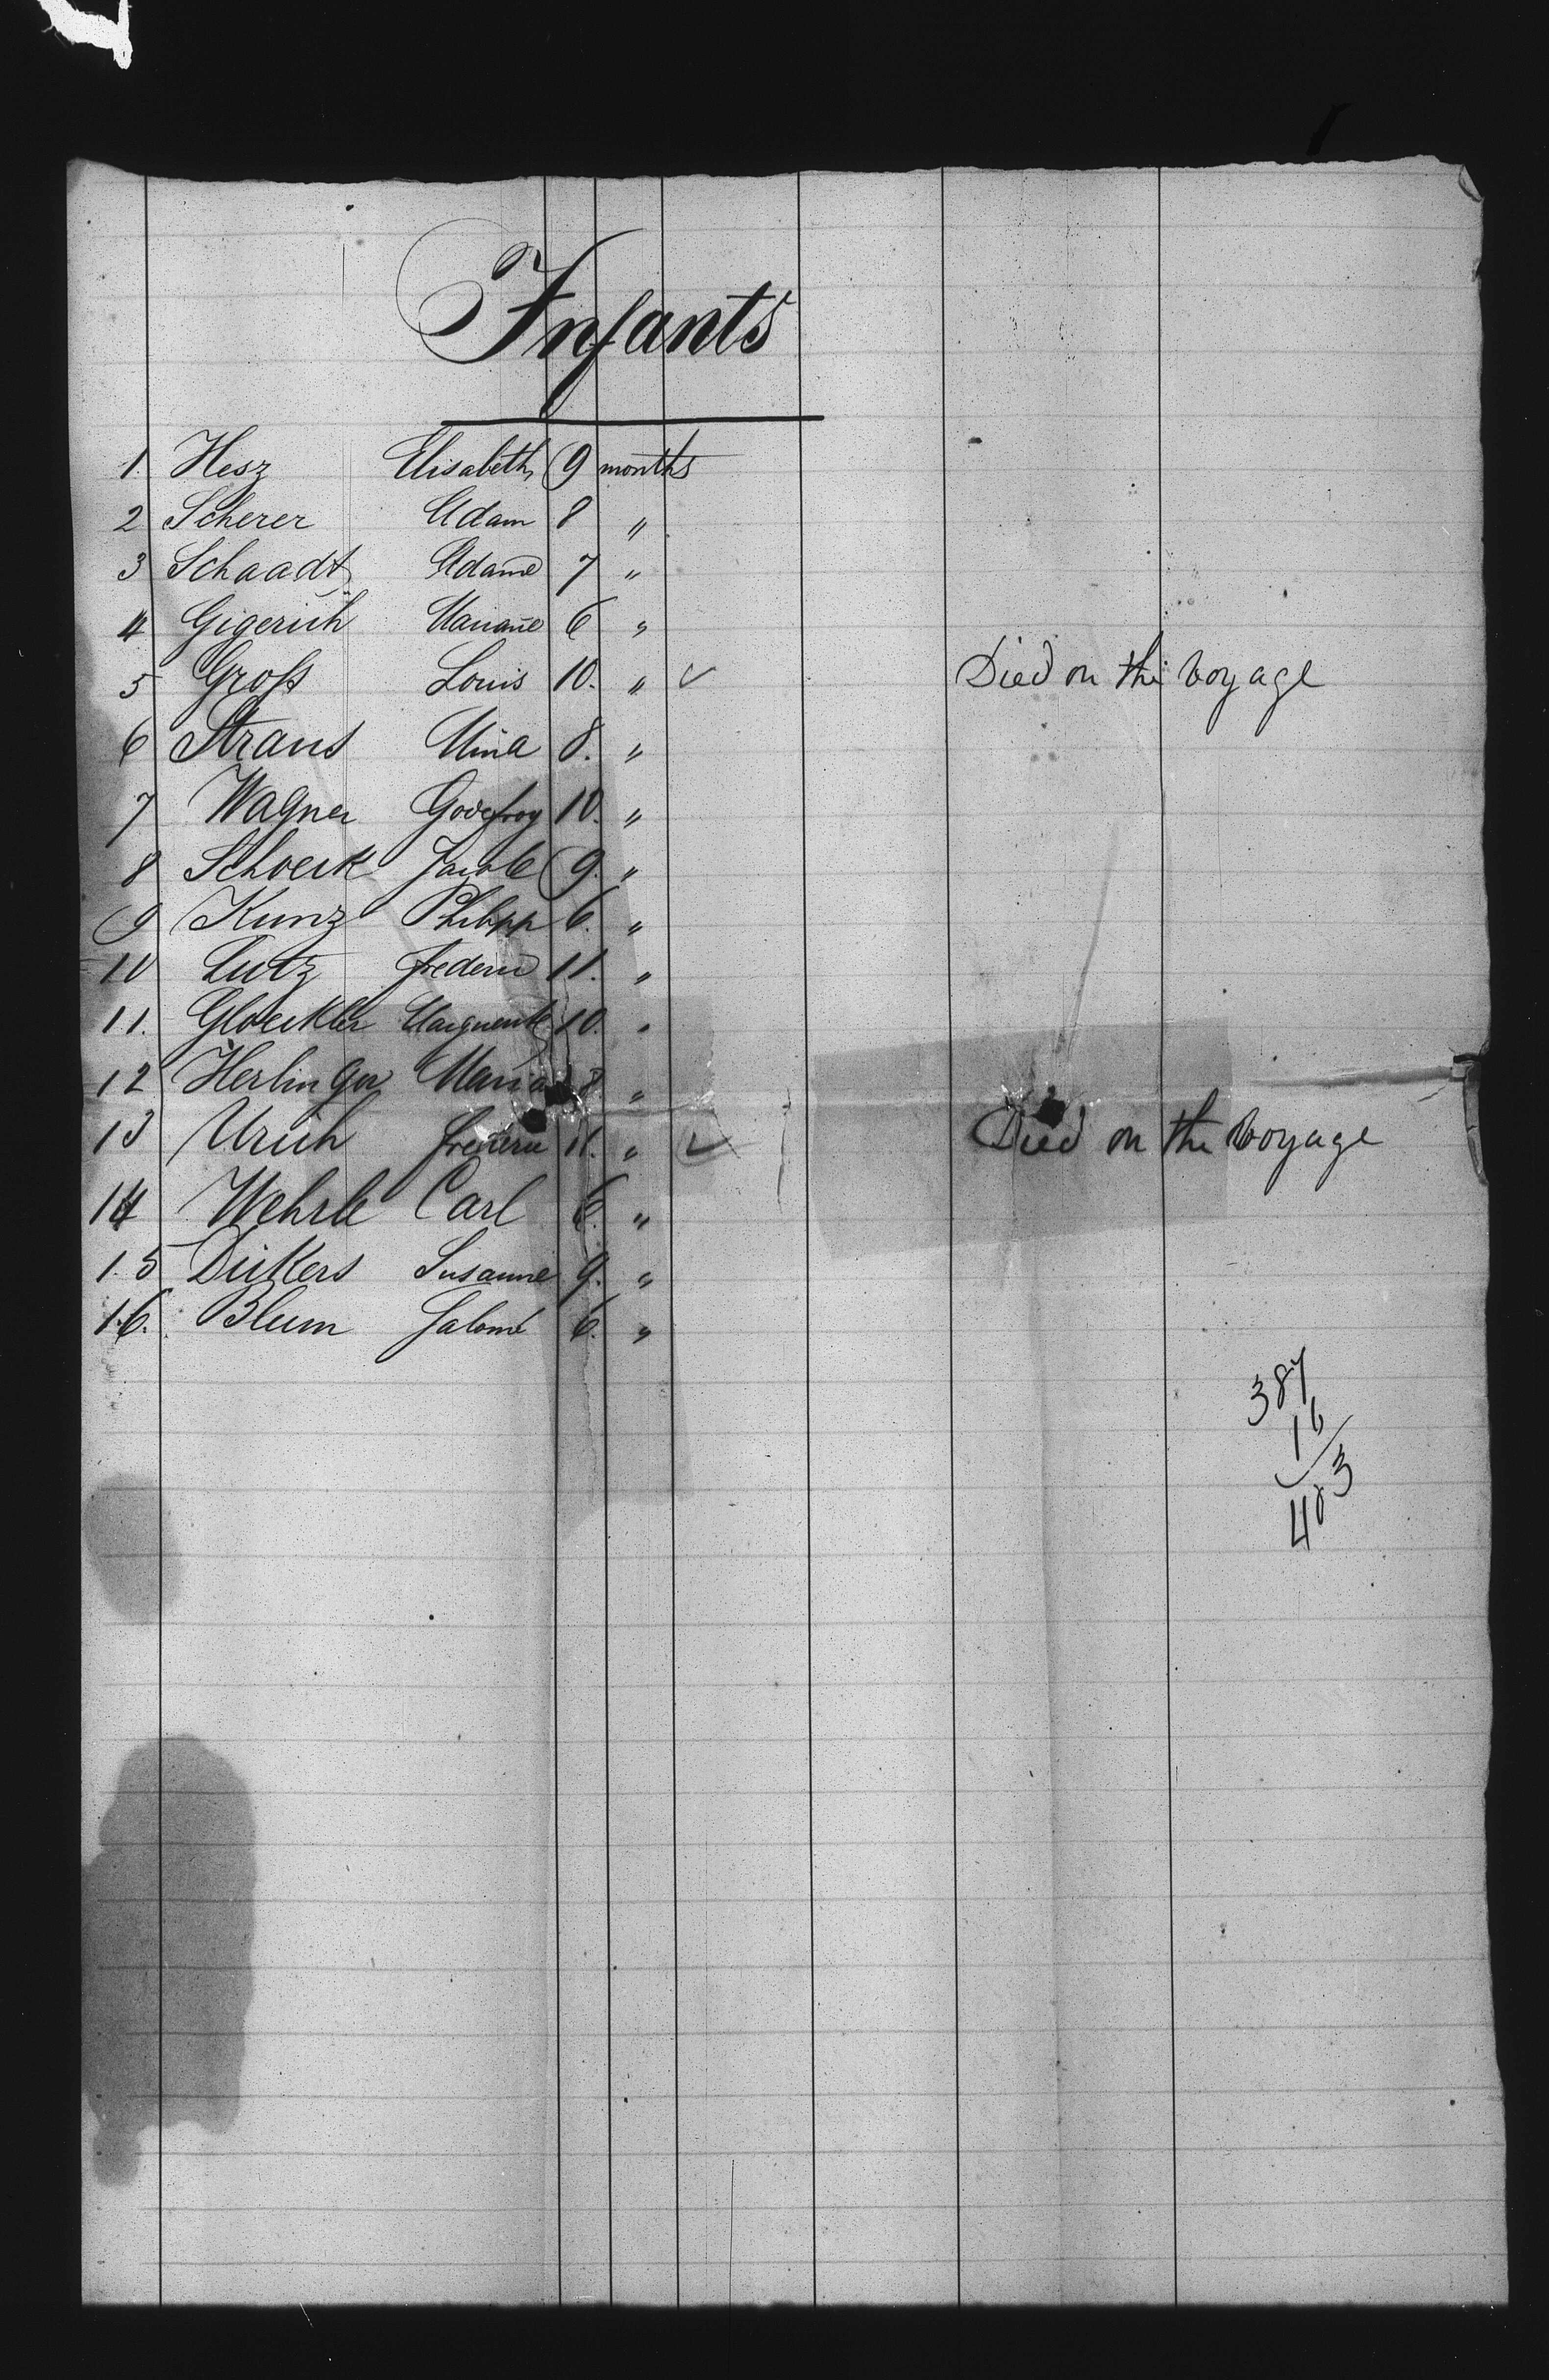 Infants
1. Hesz Elisabeth 9 months
2 Scherer Adam 8 "
3 Schaadt Adam̄e 7 "
4 Gigerich Marian̄e 6 "
5 Groß Louis 10. " ✓ Died on the voyage
6 Straus Min̄a 8. "
7 Wagner Godefroy 10. "
8 Schoeck Jacob 9. "
9 Kunz Philipp 6. "
10 Lutz frederic 11. "
11. Gloeckler Marguerite 10. "
12 Herlinger Maria 8 "
13 Urich 11. " ✓ Died on the voyage
14 Wehrle Carl 6. "
15 Dickers Susanne 9. "
16. Blum Salomé 6. "
387
16
403